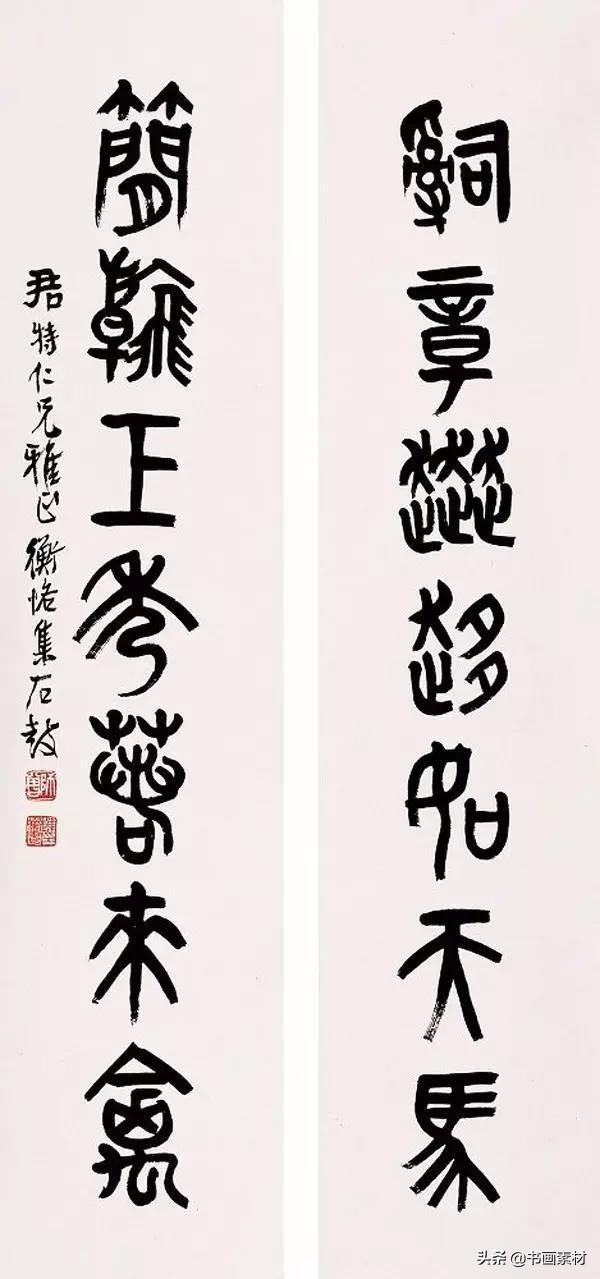 𤔲章奔趍如天馬
簡翰正秀若來禽
君特仁兄雅正 衡恪集石鼓
头条 @书画素材